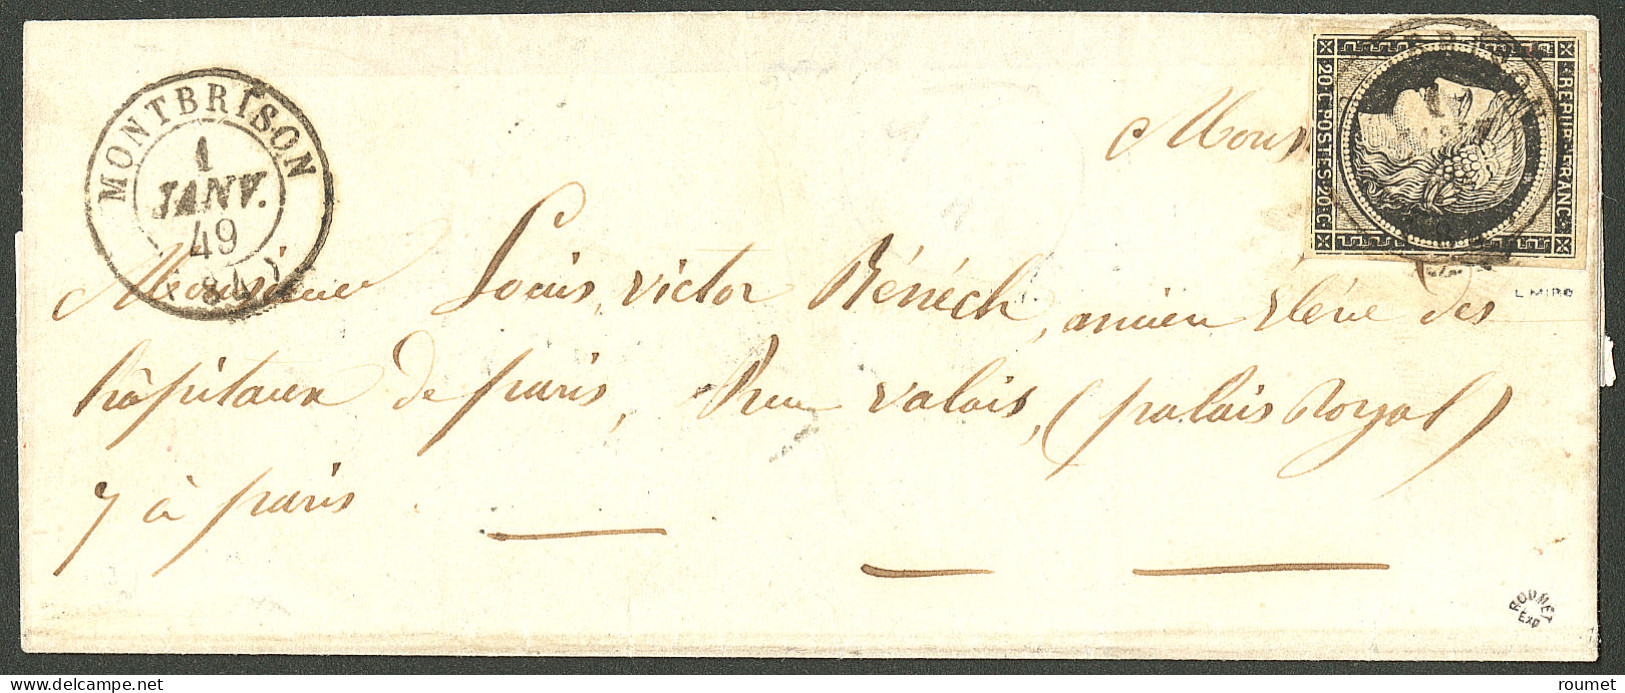 MONTBRISON
1
JANV.
49
(84)
REPUB. FRANC.
20.C.POSTES.20.C
L MIRO
Monsieur Louis, victor Bénéch, ancien élève des
hôpitaux de paris, Rue valois, (palais Royal)
7 à paris
ROUMET
EXP
delcampe.net
roumet